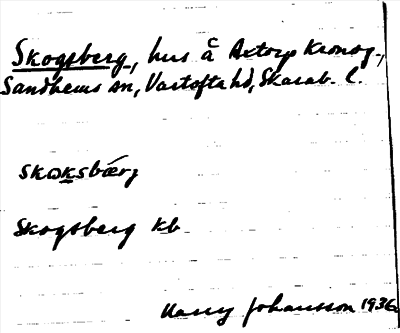 Skogsberg, hus å Axtorp Kronog.,
Sandhems sn, Vartofta hd, Skarab. l.
skωksbærj
Skogsberg kb
Harry Johansson 1936